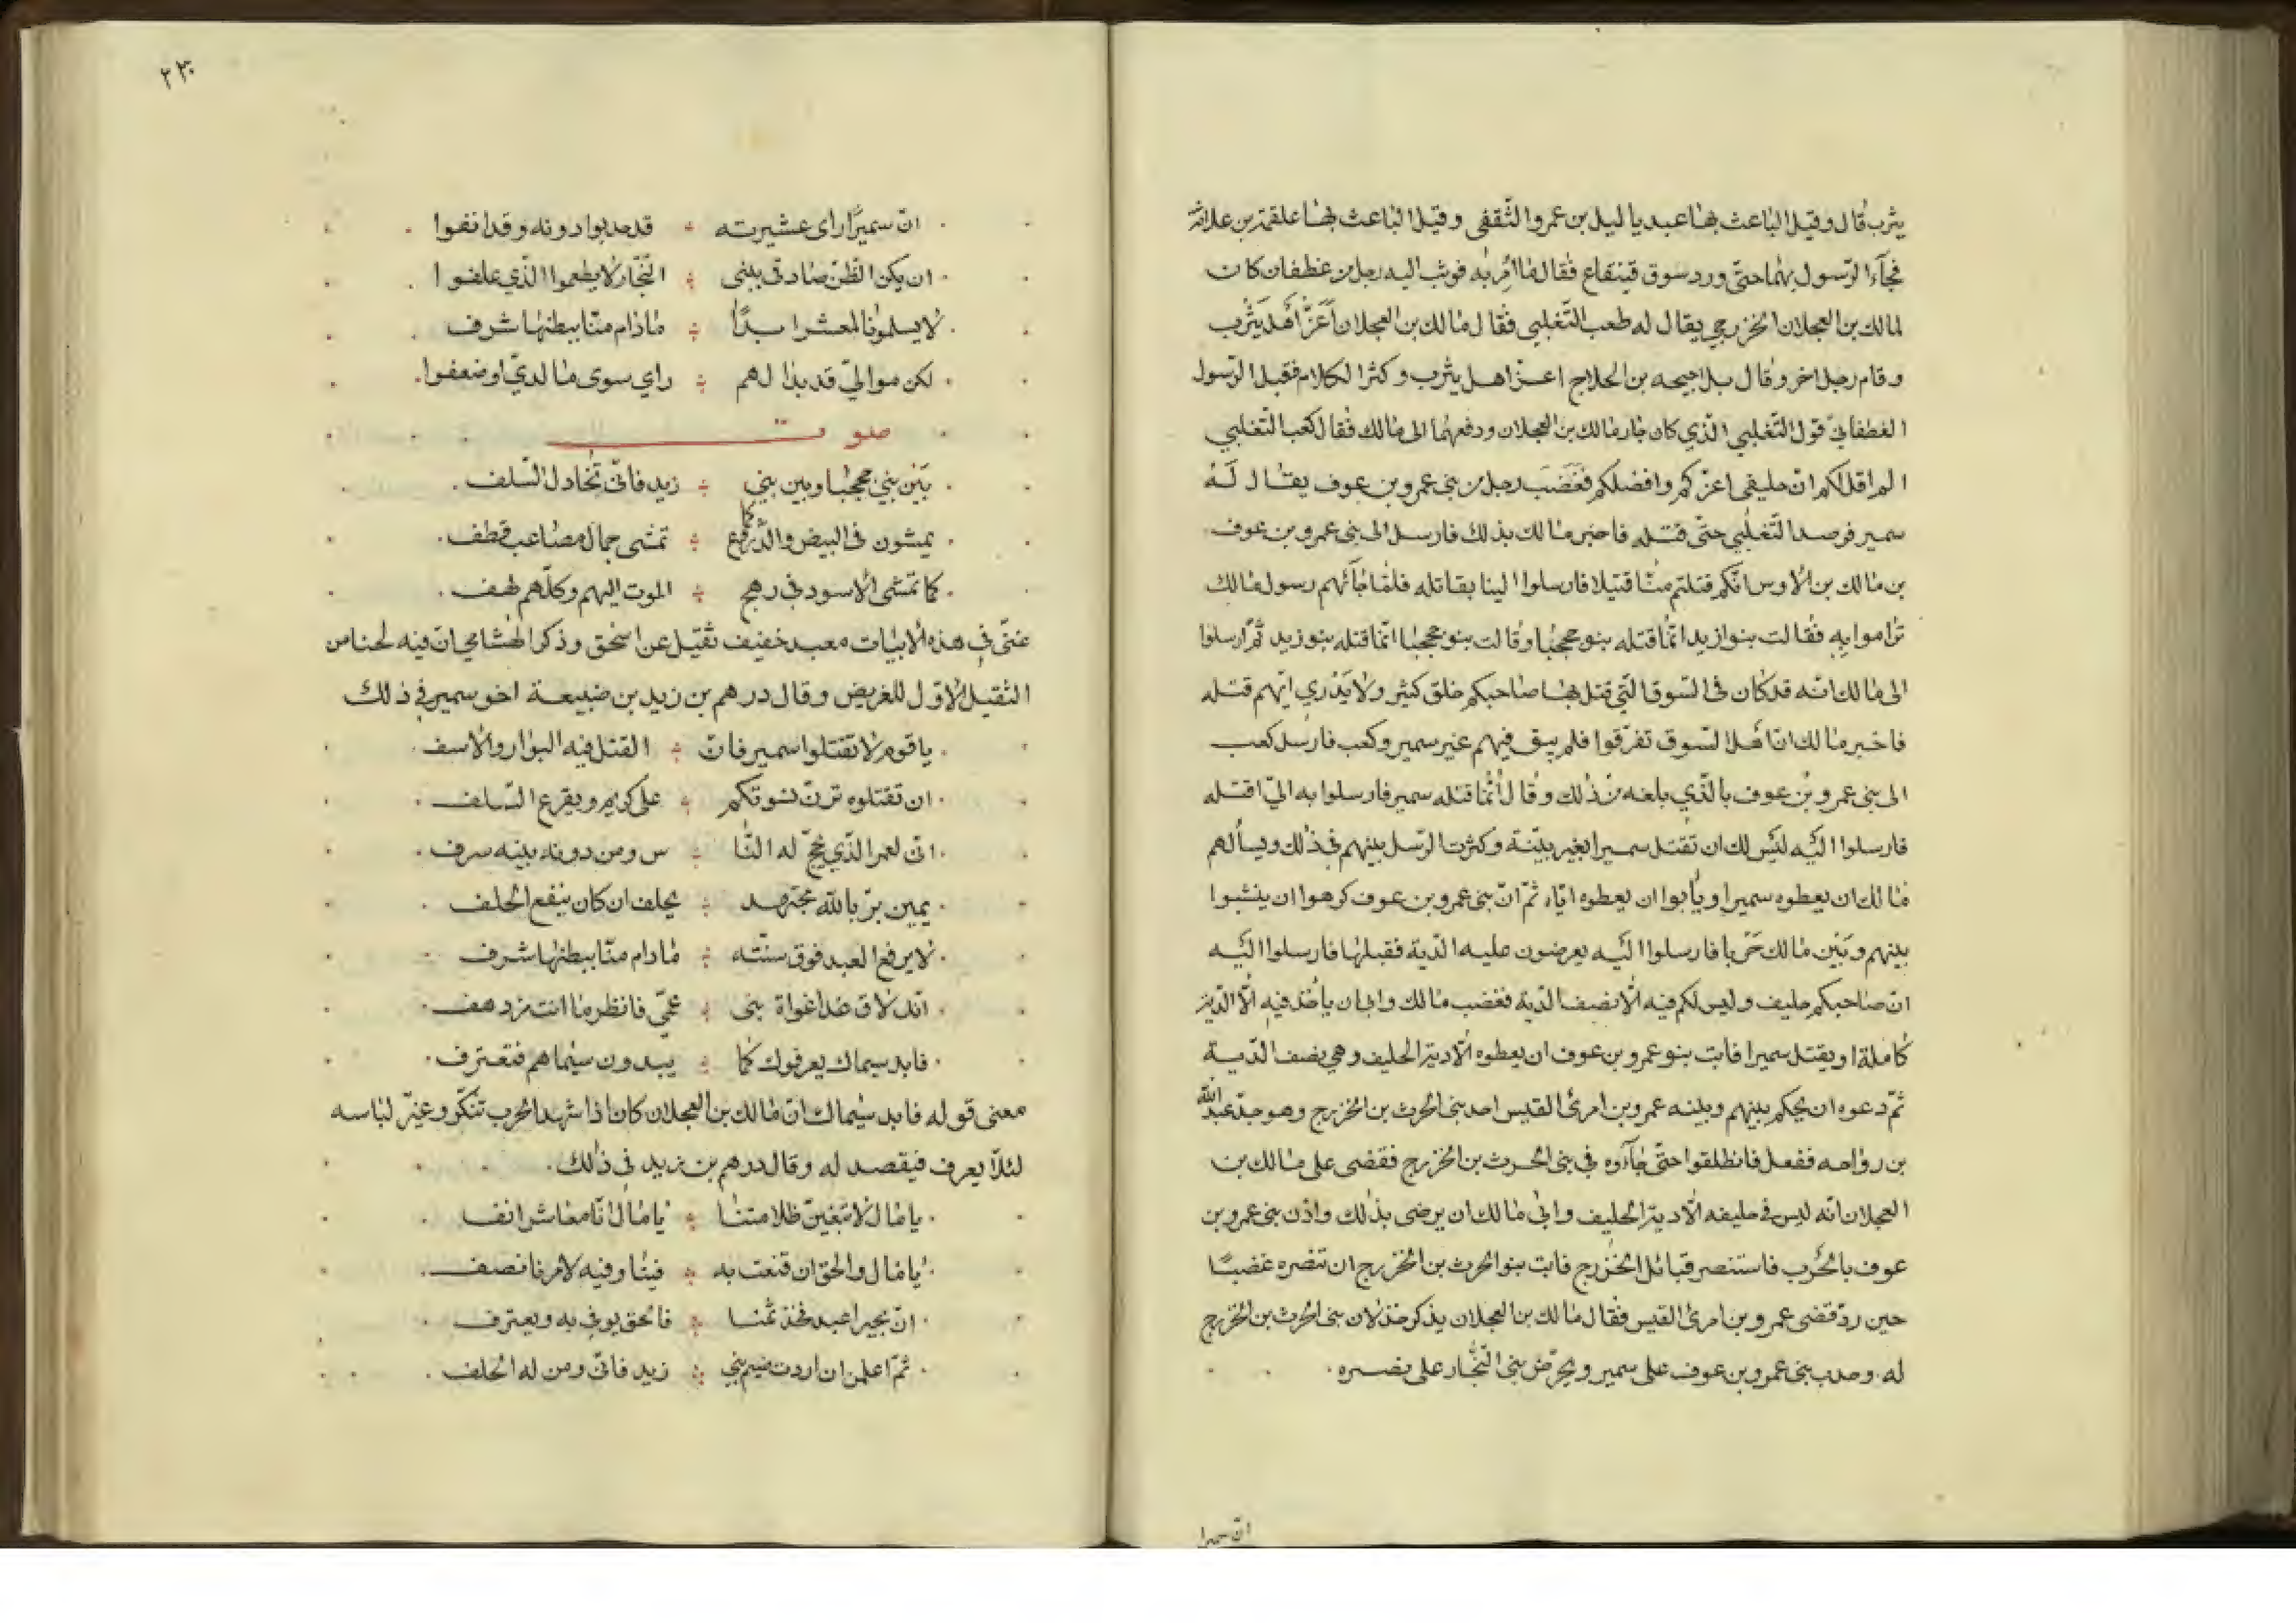 يثرب قال وقيل الباعث بها عبد ياليل بن عمرو الثقفي وقيل الباعث بها علقمة بن علاثة
فجآء الرسول بهما حتى ورد سوق قينقاع فقال ما امر به فوثب اليه رجل من غطفان كان
لمالك بن العجلان الخزرجي يقال له كعب التغلبي فقال مالك بن العجلان أعز أهل يثرب
وقام رجل اخر وقال بل احيحه بن الحلاج اعز اهل يثرب وكثر الكلام فقبل الرسول
الغطفاني قول التغلبي الذي كان جار مالك بن العجلان ودفعهما الى مالك فقال كعب التغلبي
الم اقل لكم ان حليفي اعزكم وافضلكم فغضب رجل من بني عمرو بن عوف يقال له
سمير فرصد التغلبي حتى قتله فاخبر مالك بذلك فارسل الى بني عمرو بن عوف
بن مالك بن الاوس انكم قتلتم منا قتيلا فارسلوا الينا بقاتله فلما جآئهم رسول مالك
تراموا به فقالت بنوا زيد انما قتله بنو جحجبا وقالت بنو جحجبا انما قتله بنو زيد ثم ارسلوا
الى مالك انه قد كان في السوق التي قتل بها صاحبكم خلق كثير ولا يدري ايهم قتله
فاخبر مالك ان أهل السوق تفرقوا فلم يبق فيهم غير سمير وكعب فارسل كعب
الى بني عمرو بن عوف بالذي بلغه من ذلك وقال انما قتله سمير فارسلوا به الي اقتله
فارسلوا اليه ليس لك ان تقتل سميرا بغير بينة وكثرت الرسل بينهم في ذلك ويسألهم
مالك ان يعطوه سميرا ويأبوا ان يعطوه اياه ثم ان بني عمرو بن عوف كرهوا ان ينشبوا
بينهم وبين مالك حربا فارسلوا اليه يعرضون عليه الدية فقبلها فارسلوا اليه
ان صاحبكم حليف وليس لكم فيه الا نصف الدية فغضب مالك وابى ان ياخذ فيه الا الدية
كاملة او يقتل سميرا فابت بنو عمرو بن عوف ان يعطوه الا دية الحليف وهي نصف الدية
ثم دعوه ان يحكم بينهم وبينه عمرو بن امرئ القيس احد بني الحرث بن الخزرج وهو جد عبد الله
بن رواحه ففعل فانطلقوا حتى جآءوه في بني الحرث بن الخزرج فقضى على مالك بن
العجلان انه ليس في حليفه الا دية الحليف وابى مالك ان يرضى بذلك واذن بني عمرو بن
عوف بالحرب فاستنصر قبائل الخزرج فابت بنو الحرث بن الخزرج ان تنصره غضبا
حين رد قضى عمرو بن امرئ القيس فقال مالك بن العجلان يذكر خذلان بني الحرث بن الخزرج
له وحدب بني عمرو بن عوف على سمير ويحرض بني النجار على نصره
ان سميرا
٢٣٠
ان سميرا راى عشيرته قد حدبوا دونه وقد انفوا
ان يكن الظن صادقي ببني النجار لا يطعموا الذي علفوا
لا يسلمونا لمعشر ابدا ماذام منا ببطنها شرف
لكن موالي قد بدا لهم راي سوى ما لدي او ضعفوا
صوت
بين بني جحجبا وبين بني زيد فاني تخاذل السلف
يمشون في البيض والدروع كما تمشى جمال مصاعب قطف
كما تمشى الاسود في رهج الموت اليهم وكلهم لهف
غنى في هذه الابيات معبد خفيف ثقيل عن اسحق وذكر الهشامي ان فيه لحنا من
الثقيل الاول للغريض وقال درهم بن زيد بن ضبيعة اخو سمير في ذلك
يا قوم لا تقتلوا سمير فان القتل فيه البوار والاسف
ان تقتلوه ترن نسوتكم على كريم ويقرع السلف
اني لعمر الذي يحج له النا س ومن دونه بيته سرف
يمين بر بالله مجتهد يحلف ان كان ينفع الحلف
لا يرفع العبد فوق سنته مادام منا ببطنها شرف
انك لاق غدا غواة بني عمي فانظر ما انت مزدهف
فابد سيماك يعرفوك كما يبدون سيماهم فتعترف
معنى قوله فابد سيماك ان مالك بن العجلان كان اذا شهد الحرب تنكر وغير لباسه
لئلا يعرف فيقصد له وقال درهم بن زيد في ذلك
يا مال لا تبغين ظلامتنا يا مال انا معاشر انف
يا مال والحق ان قنعت به فينا وفيه لامرنا نصف
ان بجيرا عبد فخذ ثمنا فالحق يوفي به ويعترف
ثم اعلمن ان اردت ضيم بني زيد فاني ومن له الحلف